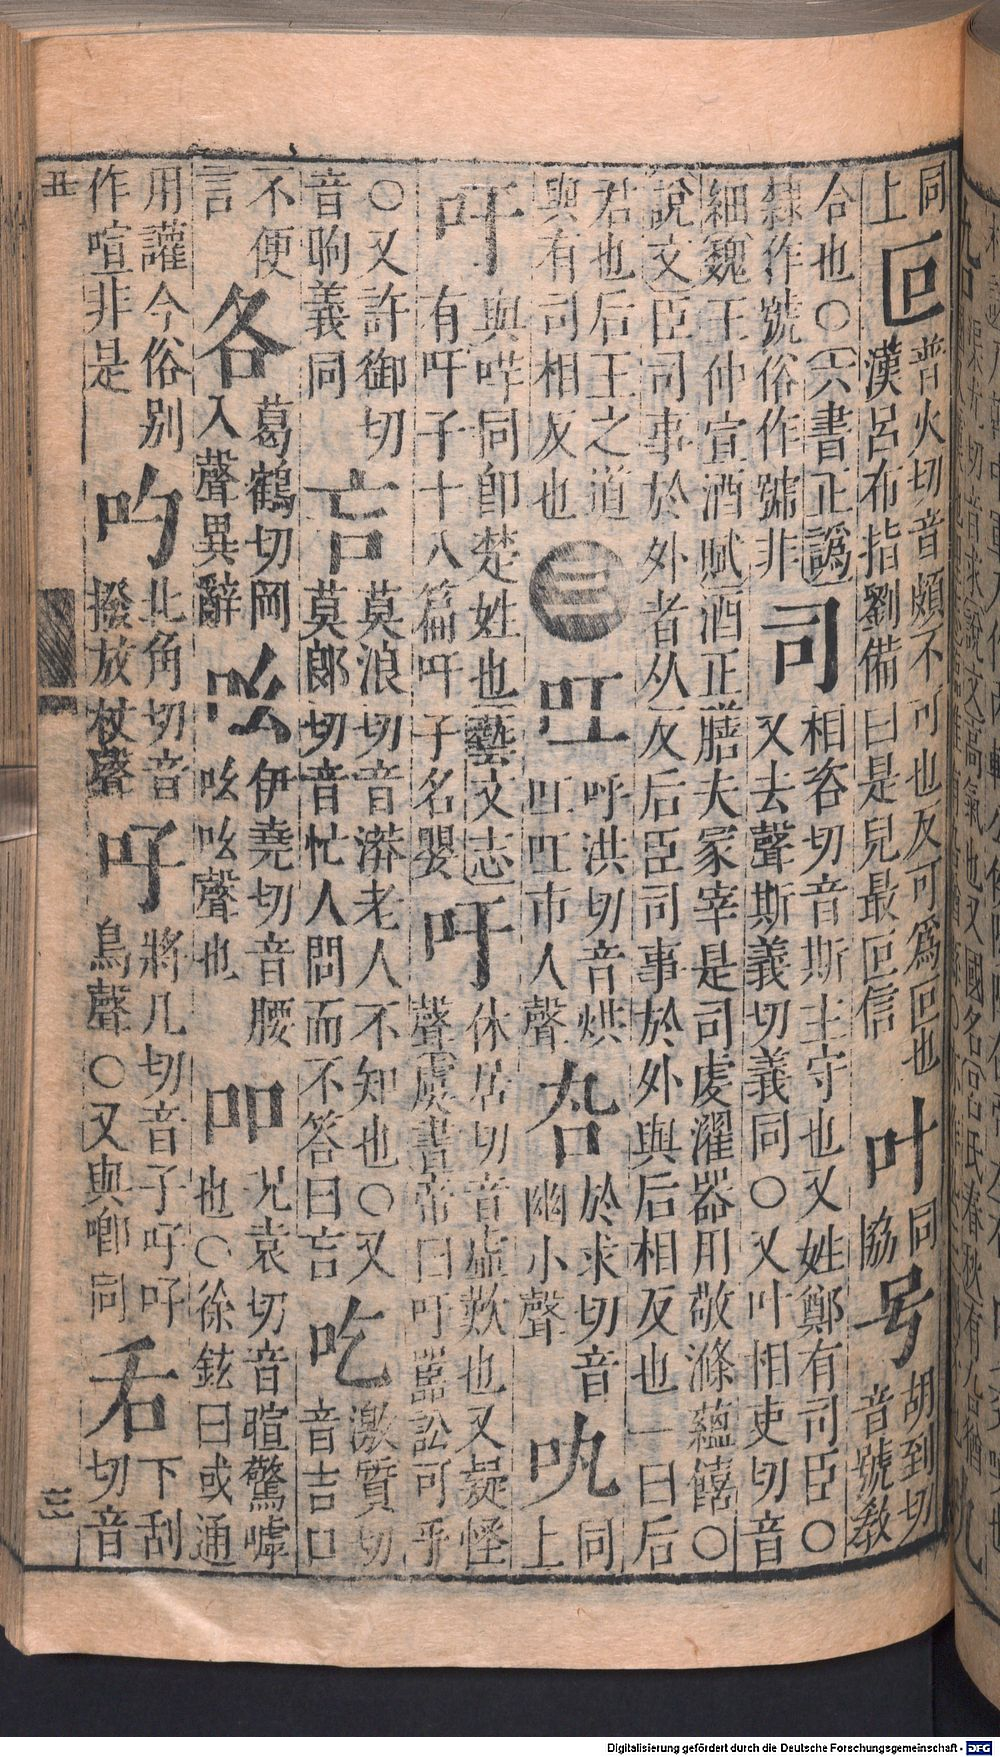 同上叵普火切音頗不可也反可爲叵也漢呂布指劉備曰是兒最叵信叶同協号胡到切音號教
合也○六書正譌隸作號俗作號非司相咨切音斯主守也又姓鄭有司臣○又去聲斯義切義同○又叶相吏切音
細魏王仲宣酒賦酒正膳夫冢宰是司虔濯器用敬滌蘊饎○說文臣司事於外者从反后臣司事於外與后相反也一曰后
君也后王之道與有司相反也三叿呼洪切音烘叿叿市人聲於求切音幽小聲同上
吀與哶同即楚姓也藝文志有吀子十八篇吀子名嬰吁休居切音虛歎也又疑怪聲虞書帝曰吁嚚訟可乎
○又許御切音昫義同吂莫浪切音漭老人不知也○又莫郎切音忙人問而不答曰吂吃激質切音吉口
不便言各葛鶴切岡入聲異辭吆伊堯切音腰吆吆聲也吅況袁切音暄驚嘑也○徐鉉曰或通
用讙今俗別作喧非是北角切音撥放杖聲吇將几切音子吇吇鳥聲○又與啣同𠯑下刮切音
丑
Digitalisierung gefördert durch die Deutsche Forschungsgemeinschaft - DFG